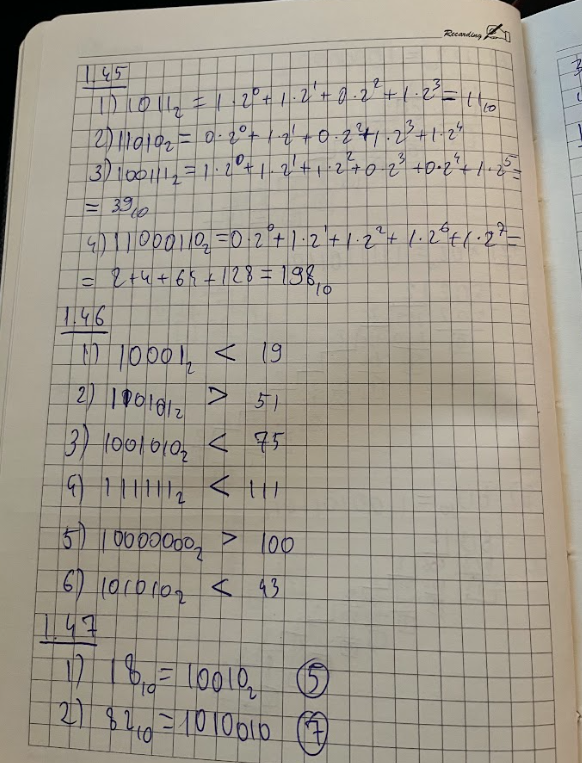 Recording
1.45
1) 1011₂ = 1·2⁰+1·2¹+0·2²+1·2³=11₁₀
2) 11010₂= 0·2⁰+1·2¹+0·2²+1·2³+1·2⁴
3) 100111₂=1·2⁰+1·2¹+1·2²+0·2³+0·2⁴+1·2⁵=
= 39₁₀
4) 11000110₂=0·2⁰+1·2¹+1·2²+1·2⁶+1·2⁷=
= 2+4+64+128=198₁₀
1.46
1) 10001₂ < 19
2) 110101₂ > 51
3) 1001010₂ < 75
4) 111111₂ < 111
5) 10000000₂ > 100
6) 101010₂ < 43
1.47
1) 18₁₀=10010₂ 5
2) 82₁₀=1010010 7